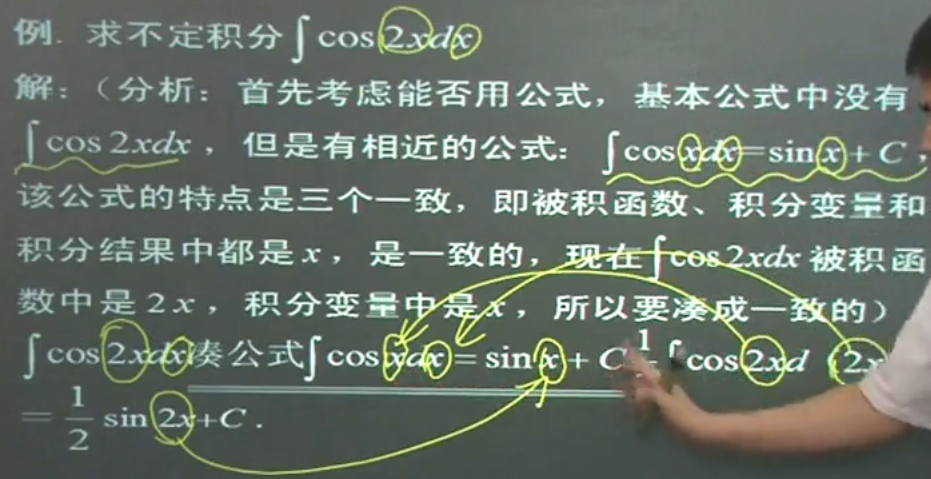 例. 求不定积分∫cos2xdx
解：（分析：首先考虑能否用公式，基本公式中没有
∫cos2xdx，但是有相近的公式：∫cosxdx=sinx+C，
该公式的特点是三个一致，即被积函数、积分变量和
积分结果中都是x，是一致的，现在∫cos2xdx被积函
数中是2x，积分变量中是x，所以要凑成一致的）
∫cos2xdx凑公式∫cosxdx=sinx+C 1 ∫cos2xd(2x
=1/2 sin2x+C.